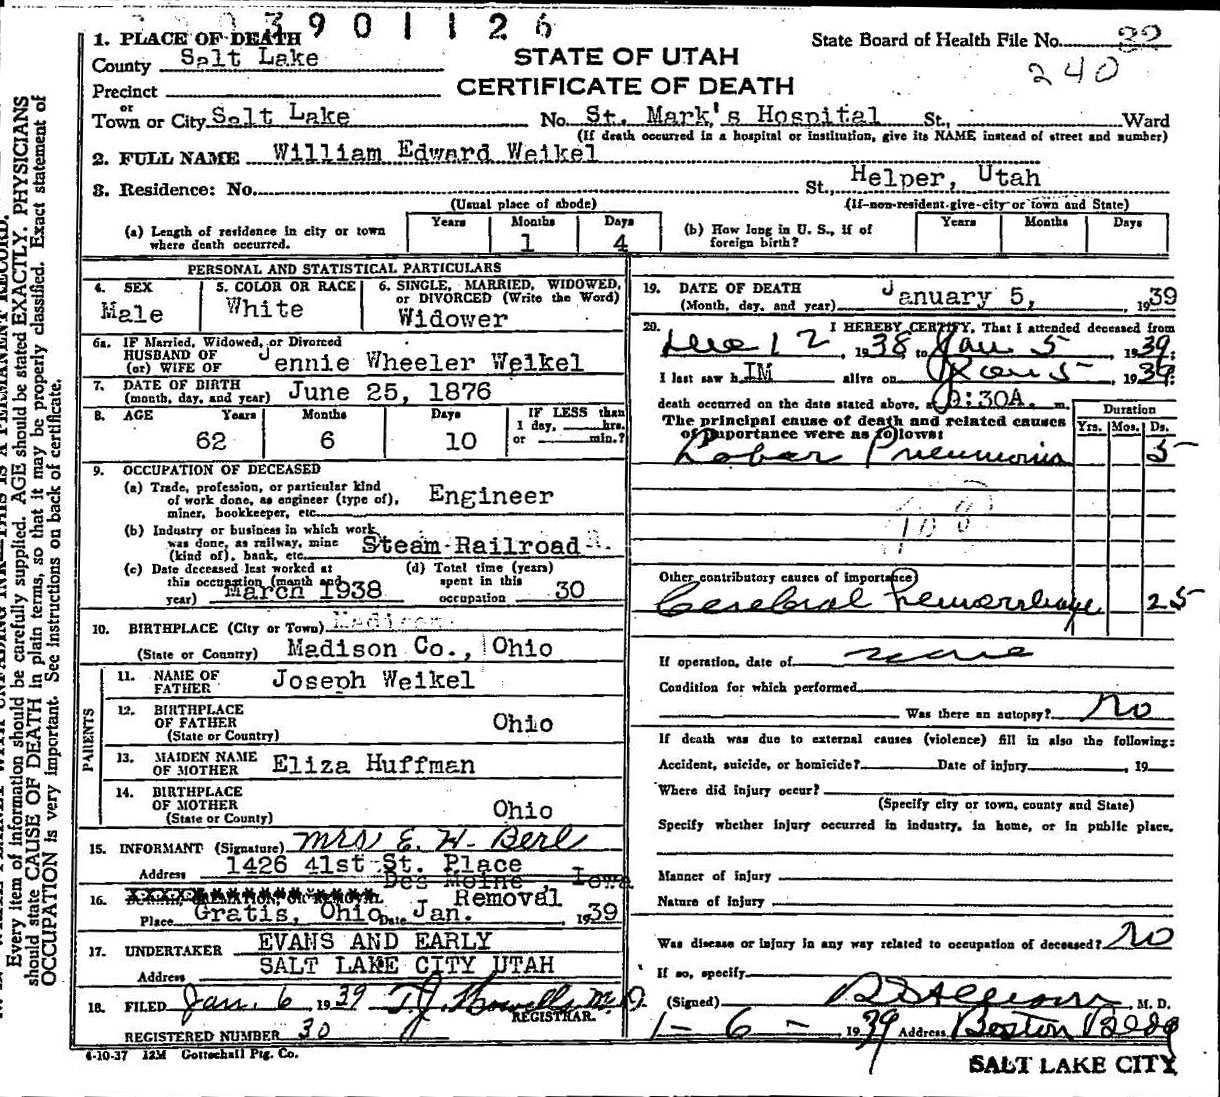 3901126
1. PLACE OF DEATH
County Salt Lake
Precinct
or
Town or City Salt Lake
STATE OF UTAH
CERTIFICATE OF DEATH
State Board of Health File No. 32
240
No. St. Mark's Hospital St., Ward
(If death occurred in a hospital or institution, give its NAME instead of street and number)
2. FULL NAME William Edward Weikel
3. Residence: No. St., Helper, Utah
(Usual place of abode) (If non-resident give city or town and State)
(a) Length of residence in city or town where death occurred. Years Months 1 Days 4
(b) How long in U. S., if of foreign birth? Years Months Days
PERSONAL AND STATISTICAL PARTICULARS
4. SEX Male
5. COLOR OR RACE White
6. SINGLE, MARRIED, WIDOWED, or DIVORCED (Write the Word) Widower
6a. IF Married, Widowed, or Divorced
HUSBAND OF
(or) WIFE OF Jennie Wheeler Weikel
7. DATE OF BIRTH
(month, day, and year) June 25, 1876
8. AGE Years 62 Months 6 Days 10
IF LESS than
1 day, hrs.
or min.?
9. OCCUPATION OF DECEASED
(a) Trade, profession, or particular kind
of work done, as engineer (type of),
miner, bookkeeper, etc. Engineer
(b) Industry or business in which work
was done, as railway, mine
(kind of), bank, etc. Steam Railroad
(c) Date deceased last worked at
this occupation (month and
year) March 1938
(d) Total time (years)
spent in this
occupation 30
10. BIRTHPLACE (City or Town) Madison
(State or Country) Madison Co., Ohio
PARENTS
11. NAME OF
FATHER Joseph Weikel
12. BIRTHPLACE
OF FATHER
(State or Country) Ohio
13. MAIDEN NAME
OF MOTHER Eliza Huffman
14. BIRTHPLACE
OF MOTHER
(State or Country) Ohio
15. INFORMANT (Signature) Mrs E. H. Berl
Address 1426 41st St. Place
Des Moine, Iowa
16. CREMATION, OR REMOVAL Removal
Place Gratis, Ohio Date Jan. 1939
17. UNDERTAKER EVANS AND EARLY
Address SALT LAKE CITY UTAH
18. FILED Jan. 6 1939 T.J. Howells M.D.
REGISTRAR.
REGISTERED NUMBER 30
4-10-37 12M Gottschall Ptg. Co.
19. DATE OF DEATH
(Month, day, and year) January 5, 1939
20. I HEREBY CERTIFY, That I attended deceased from
Dec 12, 1938 to Jan 5, 1939;
I last saw h IM alive on Jan 5, 1939;
death occurred on the date stated above, :30A. m.
The principal cause of death and related causes
of importance were as follows:
Duration
Yrs. Mos. Ds.
Lobar Pneumonia 5
108
Other contributory causes of importance)
Cerebral hemorrhage 25
If operation, date of none
Condition for which performed
Was there an autopsy? No
If death was due to external causes (violence) fill in also the following:
Accident, suicide, or homicide? Date of injury , 19
Where did injury occur?
(Specify city or town, county and State)
Specify whether injury occurred in industry, in home, or in public place.
Manner of injury
Nature of injury
Was disease or injury in any way related to occupation of deceased? No
If so, specify
(Signed) , M. D.
1-6-, 1939 Address Boston Bldg
SALT LAKE CITY
Every item of information should be carefully supplied. AGE should be stated EXACTLY. PHYSICIANS
should state CAUSE OF DEATH in plain terms, so that it may be properly classified. Exact statement of
OCCUPATION is very important. See instructions on back of certificate.